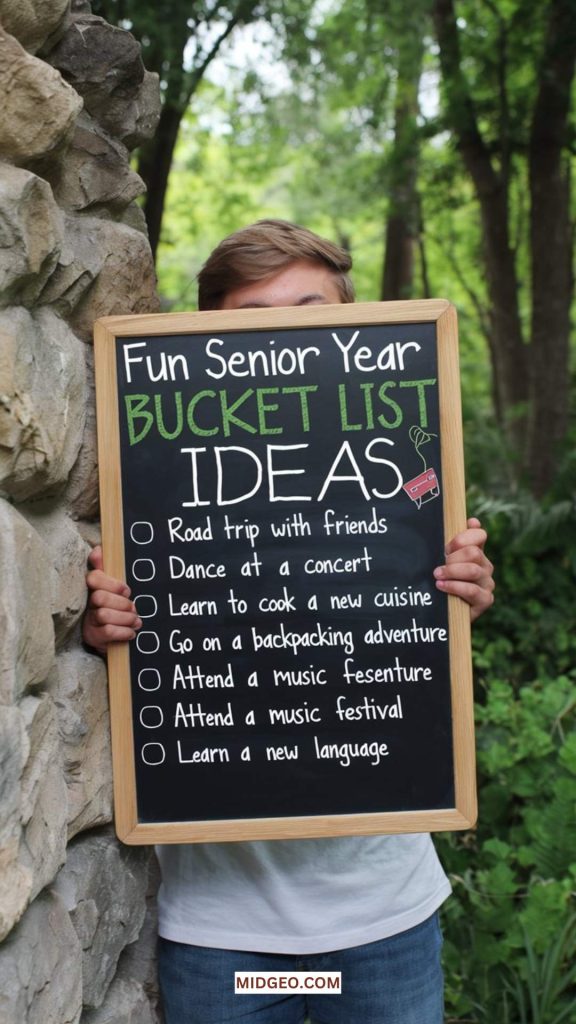 Fun Senior Year
BUCKET LIST
IDEAS
Road trip with friends
Dance at a concert
Learn to cook a new cuisine
Go on a backpacking adventure
Attend a music fesenture
Attend a music festival
Learn a new language
MIDGEO.COM